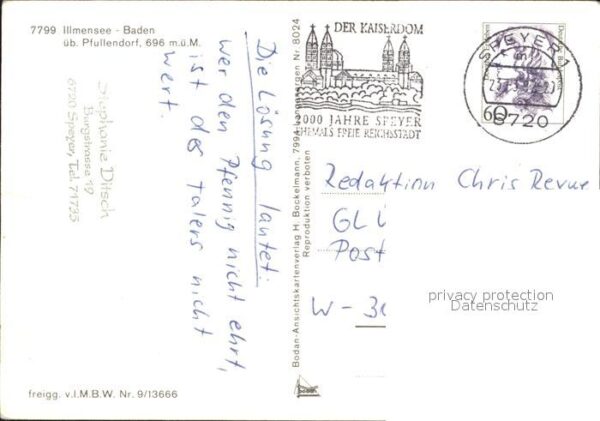 7799 Illmensee - Baden
üb. Pfullendorf, 696 m.ü.M.
Stephanie Ditsch
Burgstrasse 19
6720 Speyer, Tel. 71735
Die Lösung lautet:
Wer den Pfennig nicht ehrt,
ist des Talers nicht
wert.
freigg. v.I.M.B.W. Nr. 9/13666
Bodan-Ansichtskartenverlag H. Bockelmann, Nr. 8024
Reproduktion verboten
bodan
DER KAISERDOM
2000 JAHRE SPEYER
EHEMALS FREIE REICHSSTADT
SPEYER
6720
60
Redaktion Chris Revue
GLÜ
Post
W - 30
privacy protection
Datenschutz